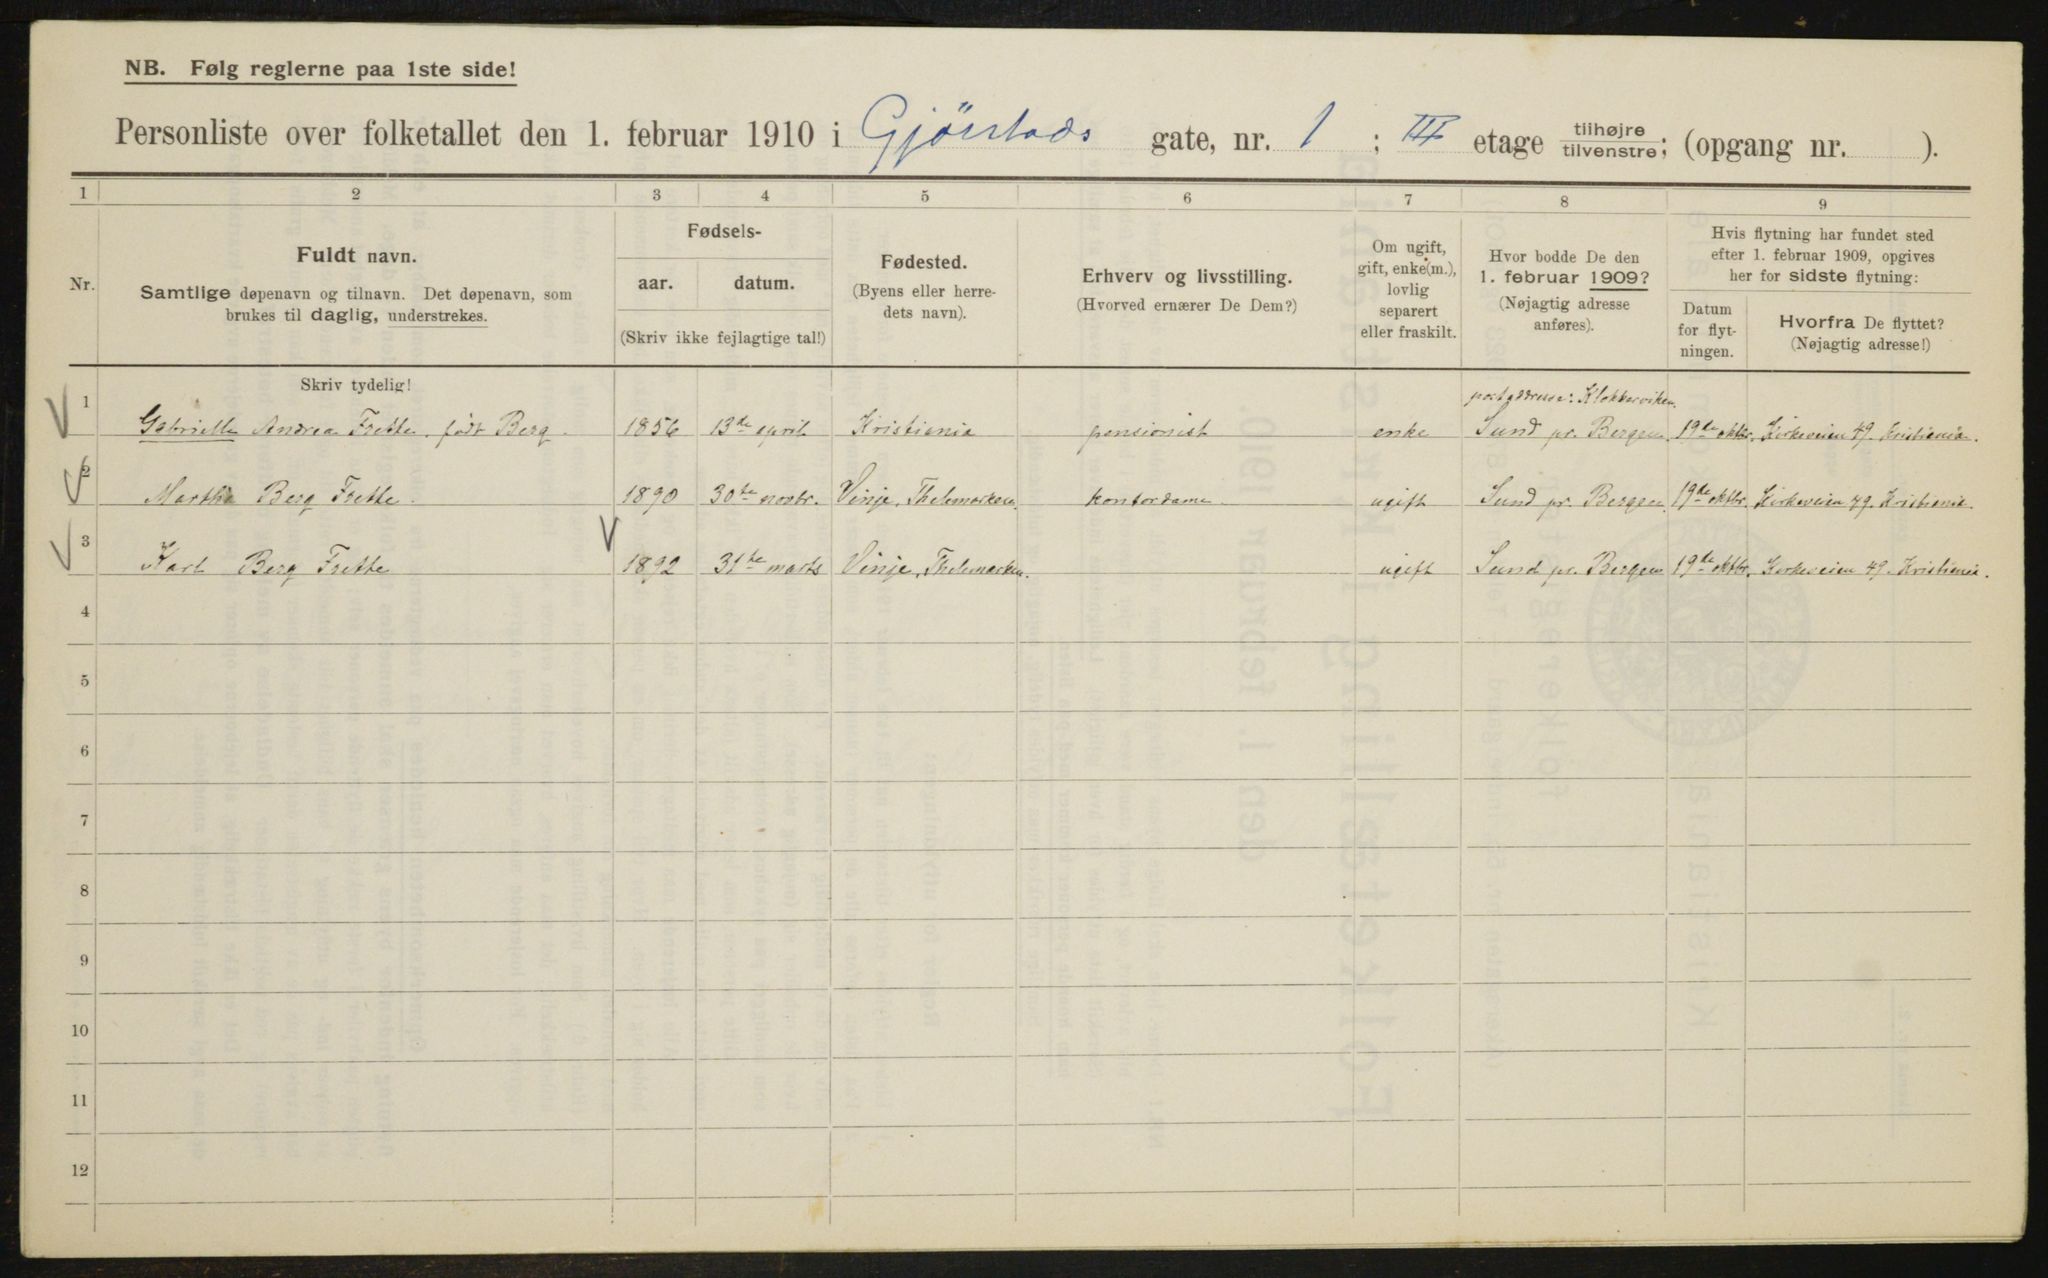 NB. Følg reglerne paa 1ste side!
Personliste over folketallet den 1. februar 1910 i Gjörstads gate, nr. 1 ; III etage tilhøjre tilvenstre; (opgang nr. ).
1 2 3 4 5 6 7 8 9
Nr.
Fuldt navn.
Samtlige døpenavn og tilnavn. Det døpenavn, som
brukes til daglig, understrekes.
Fødsels-
aar. datum.
(Skriv ikke fejlagtige tal!)
Fødested.
(Byens eller herre-
dets navn).
Erhverv og livsstilling.
(Hvorved ernærer De Dem?)
Om ugift,
gift, enke(m.),
lovlig
separert
eller fraskilt.
Hvor bodde De den
1. februar 1909?
(Nøjagtig adresse
anføres).
Hvis flytning har fundet sted
efter 1. februar 1909, opgives
her for sidste flytning:
Datum
for flyt-
ningen.
Hvorfra De flyttet?
(Nøjagtig adresse!)
Skriv tydelig!
postadresse: Klokkerviken.
1 Gabrielle Andrea Frette, født Berg. 1856 13de april Kristiania pensionist enke Sund pr. Bergen 19de oktbr. Kirkeveien 49. Kristiania.
2 Martha Berg Frette. 1890 30te novbr. Vinje, Thelemarken. kontordame ugift Sund pr. Bergen. 19de oktbr. Kirkeveien 49. Kristiania.
3 Karl Berg Frette 1892 31te marts Vinje, Thelemarken. ugift Sund pr. Bergen 19de oktbr. Kirkeveien 49. Kristiania.
4
5
6
7
8
9
10
11
12